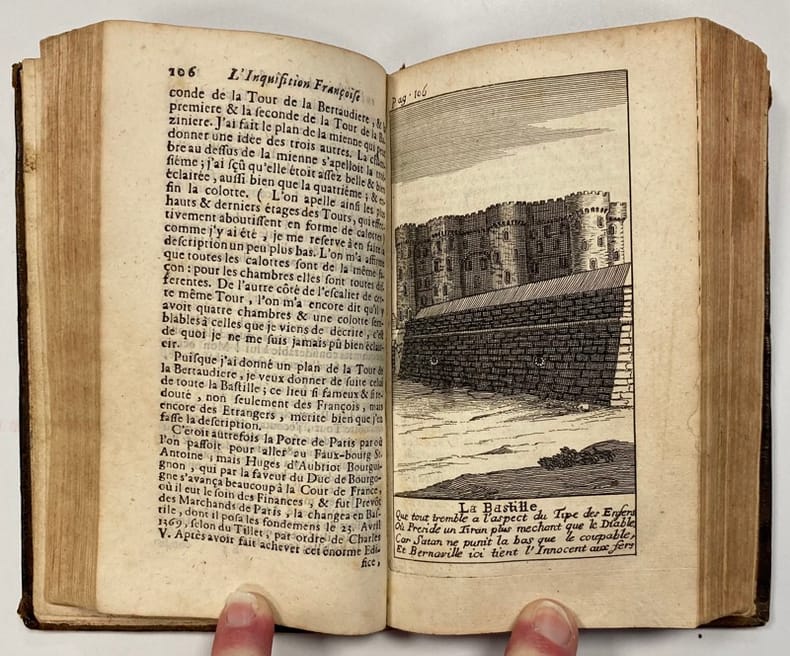 106 L'Inquisition Françoise
conde de la Tour de la Bertaudiere, & la
premiere & la seconde de la Tour de la Ba
ziniere. J'ai fait le plan de la mienne qui peut
donner une idée des trois autres. La cham-
bre au dessus de la mienne s'apelloit la troi-
siéme; j'ai sçû qu'elle étoit assez belle & bien
éclairée, aussi bien que la quatriéme; & en-
fin la colotte. ( L'on apelle ainsi les plus
hauts & derniers étages des Tours, qui effec-
tivement aboutissent en forme de calottes)
comme j'y ai été, je me reserve à en faire la
description un peu plus bas. L'on m'a assuré
que toutes les calottes sont de la même fa-
çon: pour les chambres elles sont toutes dif-
ferentes. De l'autre côté de l'escalier de cet-
te même Tour, l'on m'a encore dit qu'il y
avoit quatre chambres & une colotte sem-
blables à celles que je viens de décrite, c'est
de quoi je ne me suis jamais pû bien éclair-
cir.
Puisque j'ai donné un plan de la Tour de
la Bertaudiere, je veux donner de suite celui
de toute la Bastille; ce lieu si fameux & si re-
douté, non seulement des François, mais
encore des Etrangers, mérite bien que j'en
fasse la description.
C'étoit autrefois la Porte de Paris par où
l'on passoit pour aller au Faux-bourg St.
Antoine; mais Huges d'Aubriot Bourgui-
gnon, qui par la faveur du Duc de Bourgo-
gne s'avança beaucoup à la Cour de France,
où il eut le soin des Finances, & fut Prévôt
des Marchands de Paris, la changea en Bas-
tile, dont il posa les fondemens le 23. Avril
1369, selon du Tillet, par ordre de Charles
V. Après avoir fait achever cet énorme Edi-
fice,
Pag. 106
La Bastille
Que tout tremble a l'aspect du Tipe des Enfers
Où Preside un Tiran plus mechant que le Diable,
Car Satan ne punit la bas que le coupable,
Et Bernaville ici tient l'Innocent aux fers